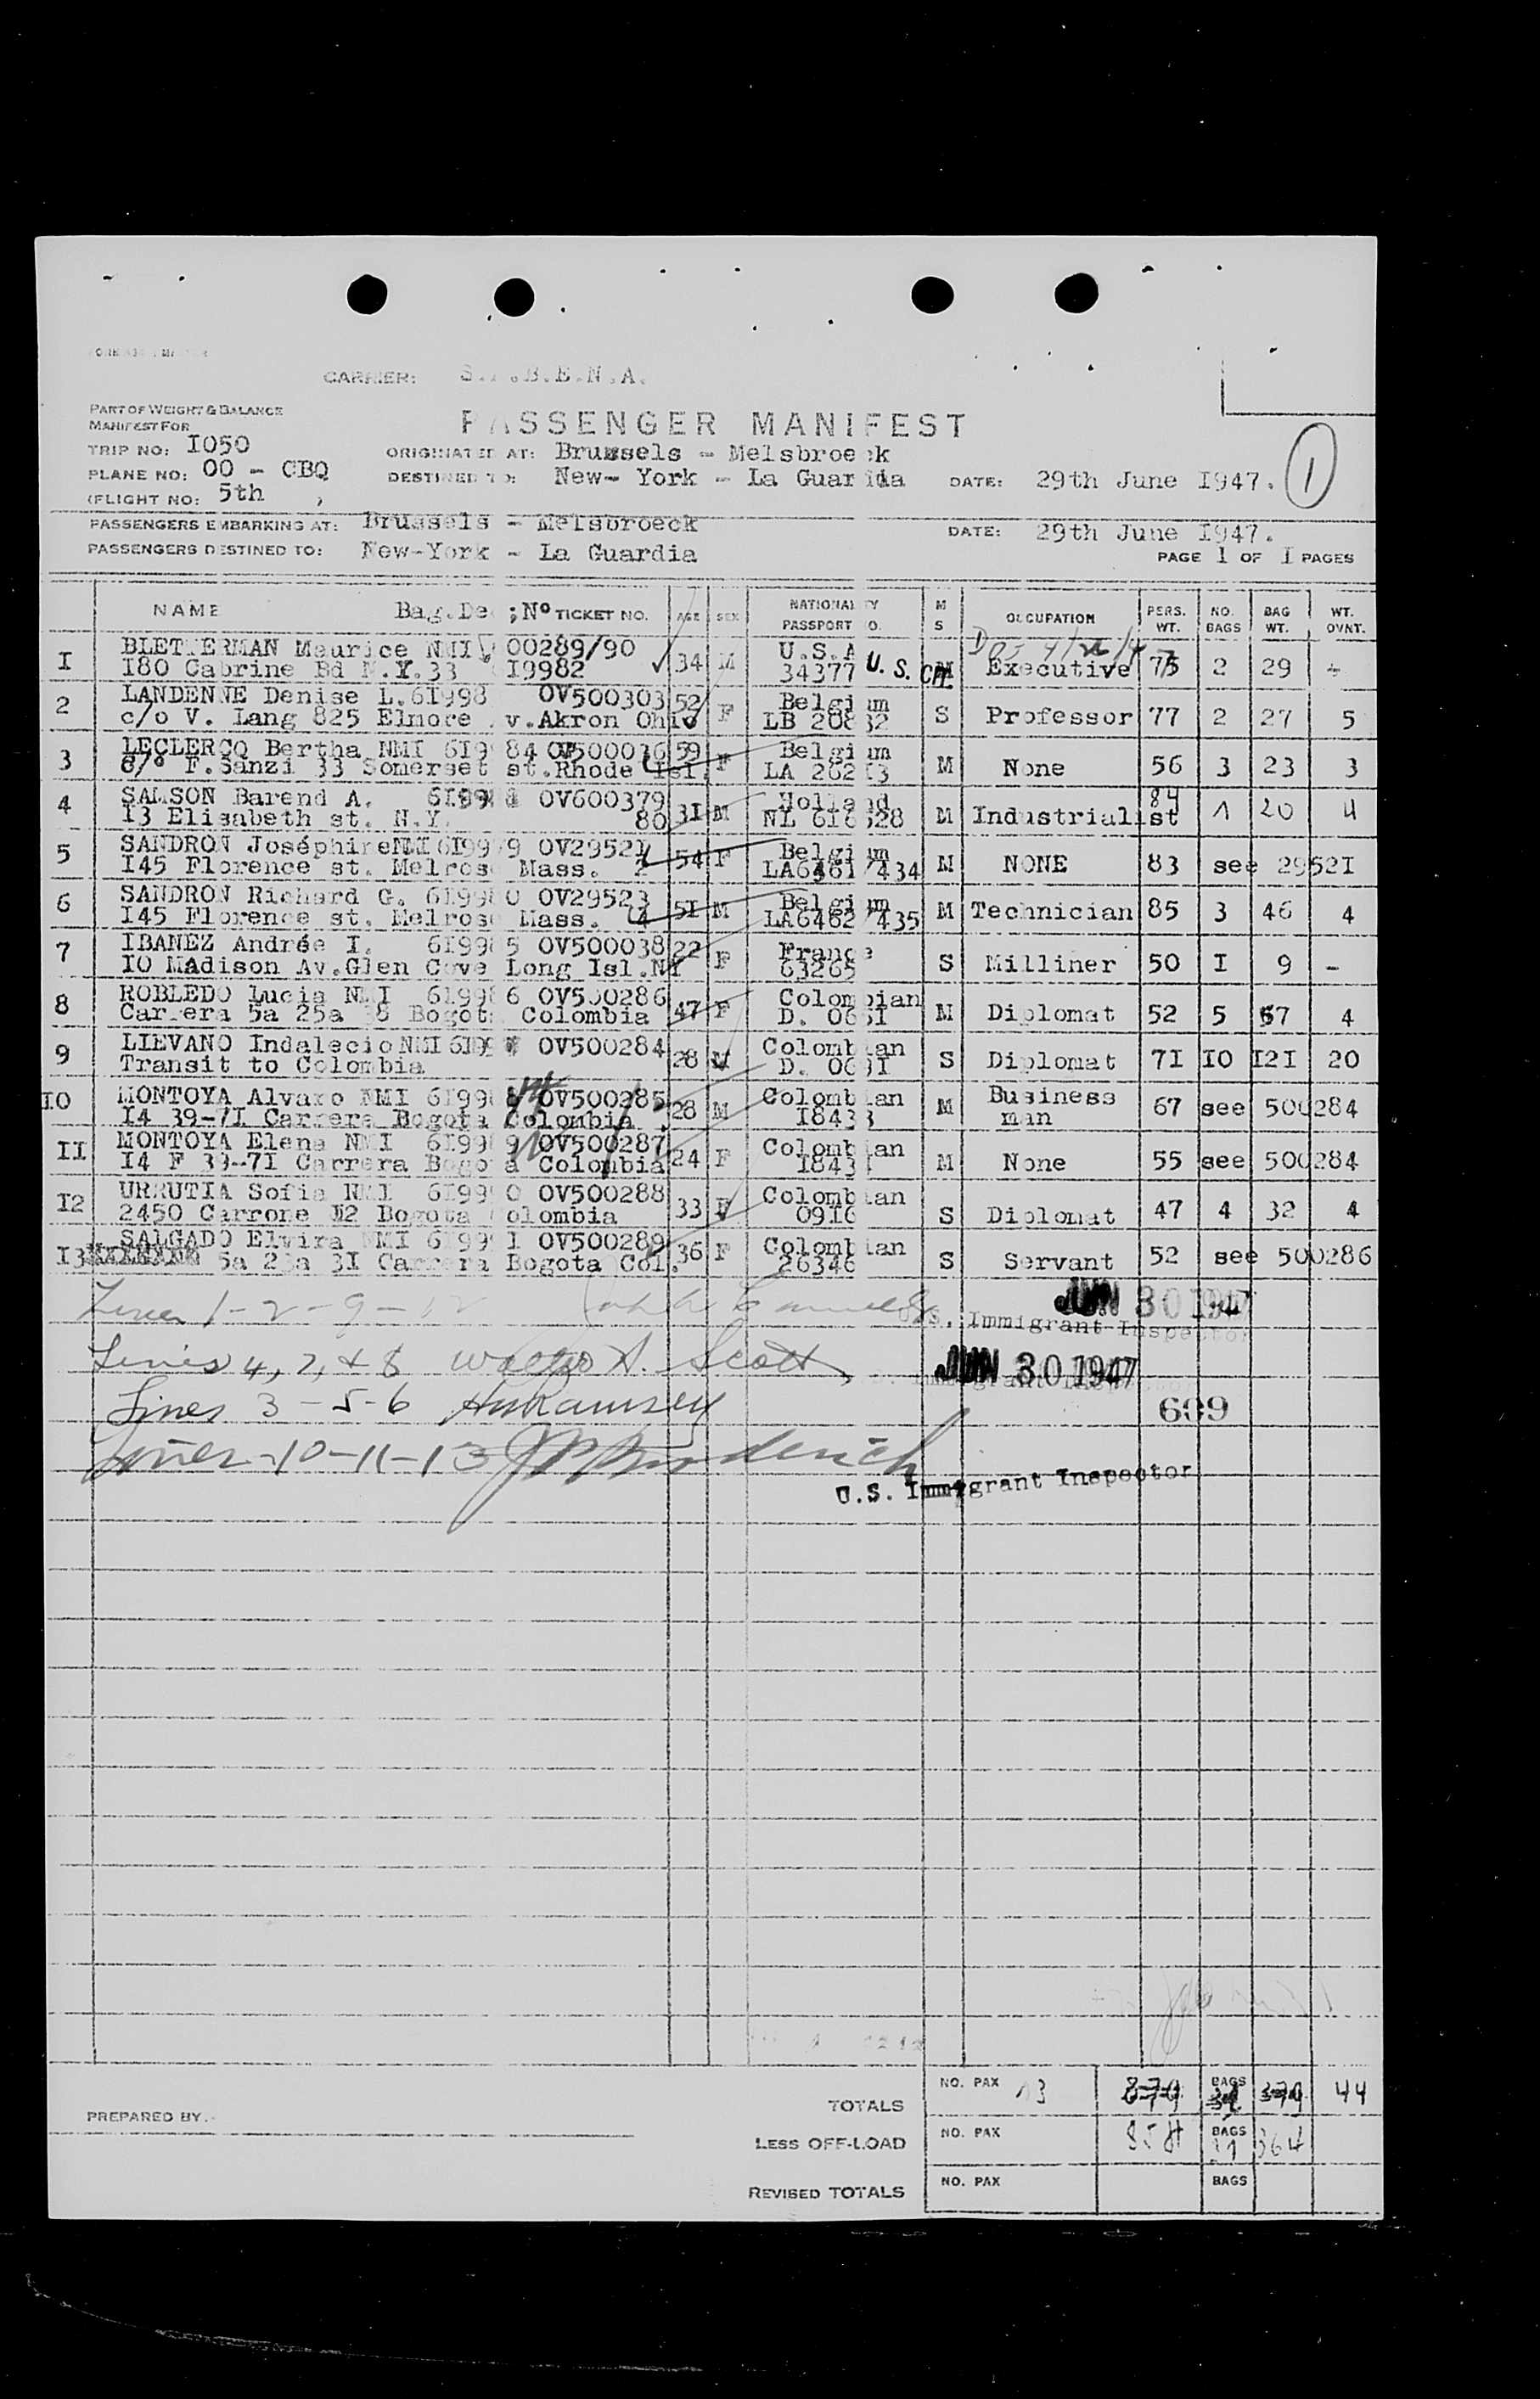 CARRIER: S. .B.E.N.A.
PART OF WEIGHT & BALANCE
MANIFEST FOR
PASSENGER MANIFEST
TRIP NO: I050
ORIGINATED AT: Brussels - Melsbroeck
PLANE NO: OO - CBQ
DESTINED TO: New- York - La Guardia DATE: 29th June I947. 1
(FLIGHT NO: 5th )
PASSENGERS EMBARKING AT: Brussels - Melsbroeck DATE: 29th June I947.
PASSENGERS DESTINED TO: New-York - La Guardia
PAGE 1 OF I PAGES
NAME Bag.De ;Nº TICKET NO. AGE SEX NATIONALITY PASSPORT NO. M S OCCUPATION PERS. WT. NO. BAGS BAG WT. WT. OVNT.
I BLETTERMAN Maurice NMI 00289/90 34 M U.S.A Executive 75 2 29
I80 Cabrine Bd N.Y.33 I9982 34377 U. S. CIT.
2 LANDENNE Denise L.6I998 OV500303 52 F Belgium S Professor 77 2 27 5
c/o V. Lang 825 Elmore v.Akron Ohio LB 20832
3 LECLERCQ Bertha NMI 6I9984 OV500016 59 F Belgium M None 56 3 23 3
c/o F.Sanzi 33 Somerset st.Rhode Isl. LA 262I3
4 SAMSON Barend A. OV600379 3I M Holland M Industrialist 84 1 20 4
I3 Elisabeth st. N.Y. 80 NL 616528
5 SANDRON Joséphine NMI 6I9979 OV2952I 54 F Belgium M NONE 83 see 2952I
I45 Florence st. Melrose Mass. 2 LA6461/434
6 SANDRON Richard G. 6I9980 OV29523 5I M Belgium M Technician 85 3 46 4
I45 Florence st. Melrose Mass. 4 LA6462/435
7 IBANEZ Andrée I. 6I9985 OV500038 22 F France S Milliner 50 I 9 -
IO Madison Av.Glen Cove Long Isl.NY 63265
8 ROBLEDO Lucia NMI 6I9986 OV500286 47 F Colombian M Diplomat 52 5 57 4
Carrera 5a 25a 38 Bogota Colombia
9 LIEVANO Indalecio NMI OV500284 28 M Colombian S Diplomat 7I IO I2I 20
Transit to Colombia
IO MONTOYA Alvaro NMI 6I9988 OV500285 28 M Colombian M Business man 67 see 500284
I4 39-7I Carrera Bogota Colombia I8433
II MONTOYA Elena NMI 6I9989 OV500287 24 F Colombian M None 55 see 500284
I4 F 39-7I Carrera Bogota Colombia
I2 URRUTIA Sofia NMI 6I9990 OV500288 33 F Colombian S Diplomat 47 4 32 4
2450 Carrone Bogota Colombia 0916
I3 SALGADO Elvira NMI 6I999I OV500289 36 F Colombian S Servant 52 see 500286
5a 23a 3I Carrera Bogota Col. 26346
Lines 1-2-9-12 JUN 30 1947
U.S. Immigrant Inspector
Lines 4, 7, & 8 Walter A. Scott JUN 30 1947
Lines 3-5-6 Ramsey 609
Lines-10-11-13 Broderick
U.S. Immigrant Inspector
TOTALS NO. PAX 13 BAGS 44
PREPARED BY
LESS OFF-LOAD NO. PAX 858 BAGS 364
REVISED TOTALS NO. PAX BAGS